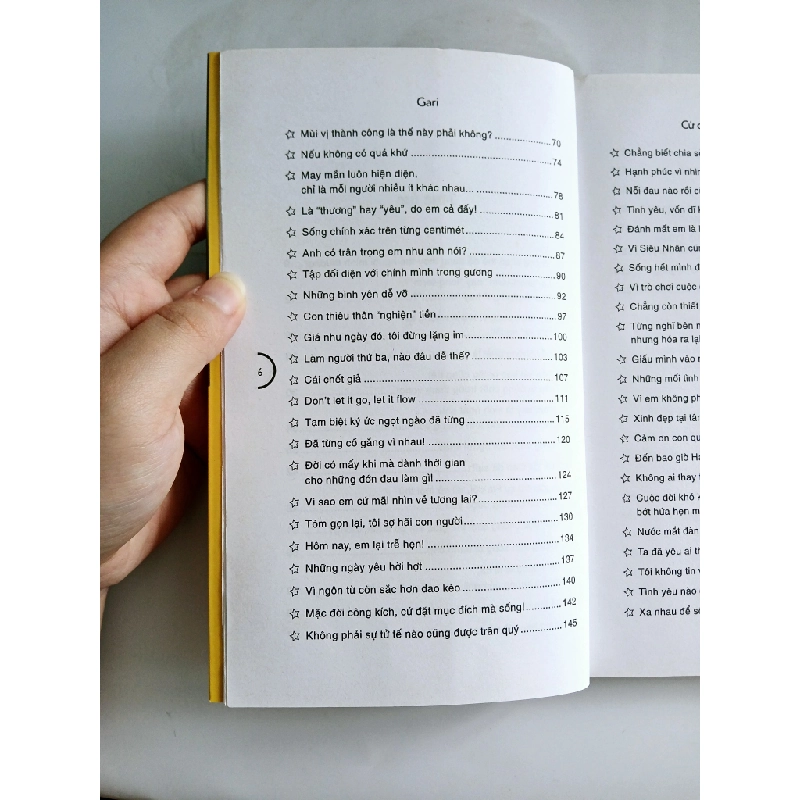 Gari
Mùi vị thành công là thế này phải không? 70
Nếu không có quá khứ 74
May mắn luôn hiện diện,
chỉ là mỗi người nhiều ít khác nhau... 78
Là "thương" hay "yêu", do em cả đấy! 81
Sống chính xác trên từng centimét 84
Anh có trân trọng em như anh nói? 87
Tập đối diện với chính mình trong gương 90
Những bình yên dễ vỡ 92
Con thiêu thân "nghiện" tiền 97
Giá như ngày đó, tôi đừng lặng im 100
Làm người thứ ba, nào đâu dễ thế? 103
6
Cái chốt giả 107
Don't let it go, let it flow 111
Tạm biệt ký ức ngọt ngào đã từng 115
Đã từng cố gắng vì nhau! 120
Đời có mấy khi mà dành thời gian
cho những đớn đau làm gì! 124
Vì sao em cứ mãi nhìn về tương lai? 127
Tóm gọn lại, tôi sợ hãi con người 130
Hôm nay, em lại trễ hẹn! 134
Những ngày yêu hời hợt 137
Vì ngôn từ còn sắc hơn dao kéo 140
Mặc đời công kích, cứ đặt mục đích mà sống! 142
Không phải sự tử tế nào cũng được trân quý 145
Chẳng biết chia
Hạnh phúc vì
Nỗi đau nào rồi
Tình yêu, vốn dĩ
Đánh mất em là
Vì Siêu Nhân
Sống hết mình
Vì trò chơi cuộc
Chẳng còn thiết
Từng nghĩ bên
nhưng hóa ra lại
Giấu mình vào
Những mối tình
Vì em không
Xinh đẹp tại
Cảm ơn con
Đến bao giờ
Không ai thay
Cuộc đời khó
bớt hứa hẹn
Nước mắt đàn
Ta đã yêu ai
Tôi không tin
Tình yêu nào
Xa nhau để